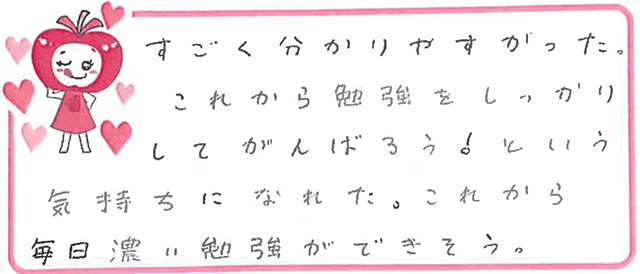 すごく分かりやすかった。
これから勉強をしっかり
してがんばろう!という
気持ちになれた。これから
毎日濃い勉強ができそう。